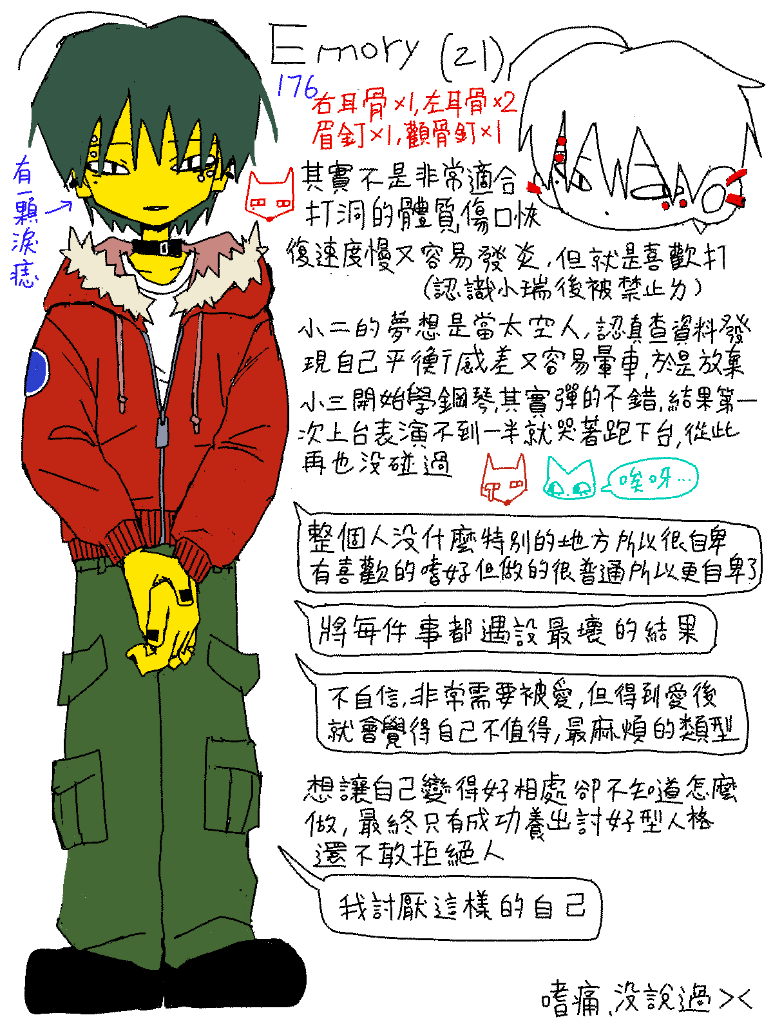 Emory (21)
176
右耳骨×1,左耳骨×2
眉釘×1,顴骨釘×1
有一顆淚痣
其實不是非常適合
打洞的體質,傷口恢
復速度慢又容易發炎,但就是喜歡打
(認識小瑞後被禁止ㄌ)
小二的夢想是當太空人,認真查資料發
現自己平衡ㄎ感差又容易暈車,於是放棄
小三開始學鋼琴,其實彈的不錯,結果第一
次上台表演不到一半就哭著跑下台,從此
再也沒碰過
唉呀…
整個人沒什麼特別的地方所以很自卑
有喜歡的嗜好但做的很普通所以更自卑了
將每件事都預設最壞的結果
不自信,非常需要被愛,但得到愛後
就會覺得自己不值得,最麻煩的類型
想讓自己變得好相處卻不知道怎麼
做,最終只有成功養出討好型人格
還不敢拒絕人
我討厭這樣的自己
嗜痛,沒說過><